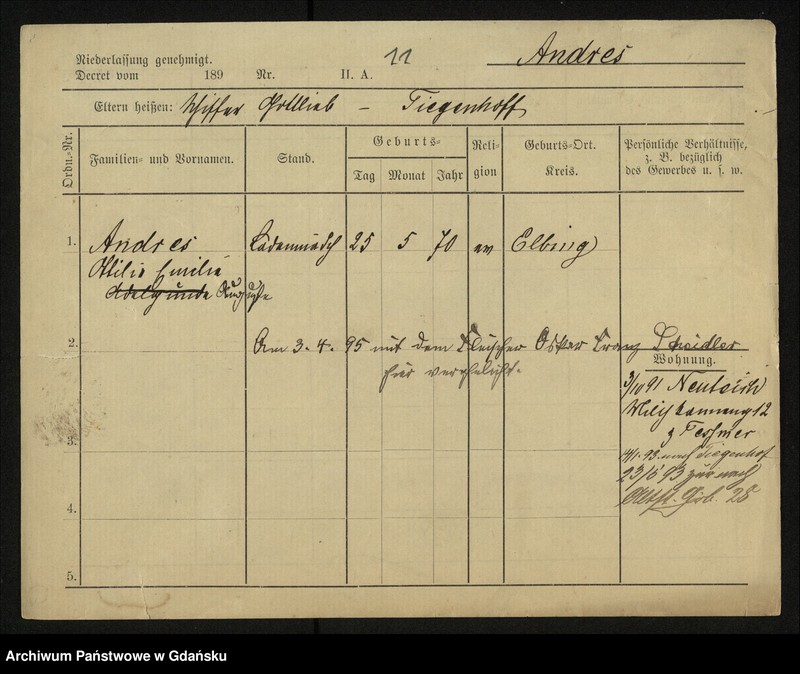 Niederlassung genehmigt.
Decret vom 189 Nr. II. A. 11
Andres
Eltern heißen: Schiffer Gottlieb – Tiegenhoff
Ordn.-Nr.
Familien- und Vornamen.
Stand.
Geburts-
Tag Monat Jahr
Reli-
gion
Geburts-Ort.
Kreis.
Persönliche Verhältnisse,
z. B. bezüglich
des Gewerbes u. s. w.
1. Andres Ladenmädch 25 5 70 ev Elbing
Ottilie Emilie
Adelgunde Auguste
2. Am 3. 4. 95 mit dem Fleischer Oskar Franz Scheidler
hier verehelicht.
Wohnung.
3/10 91 Neuteich
Milchkanneng 12
Tessmer
14/1. 93 nach Tiegenhof
23/6 93 zur nach
Altst. Grb. 28
3.
4.
5.
Archiwum Państwowe w Gdańsku